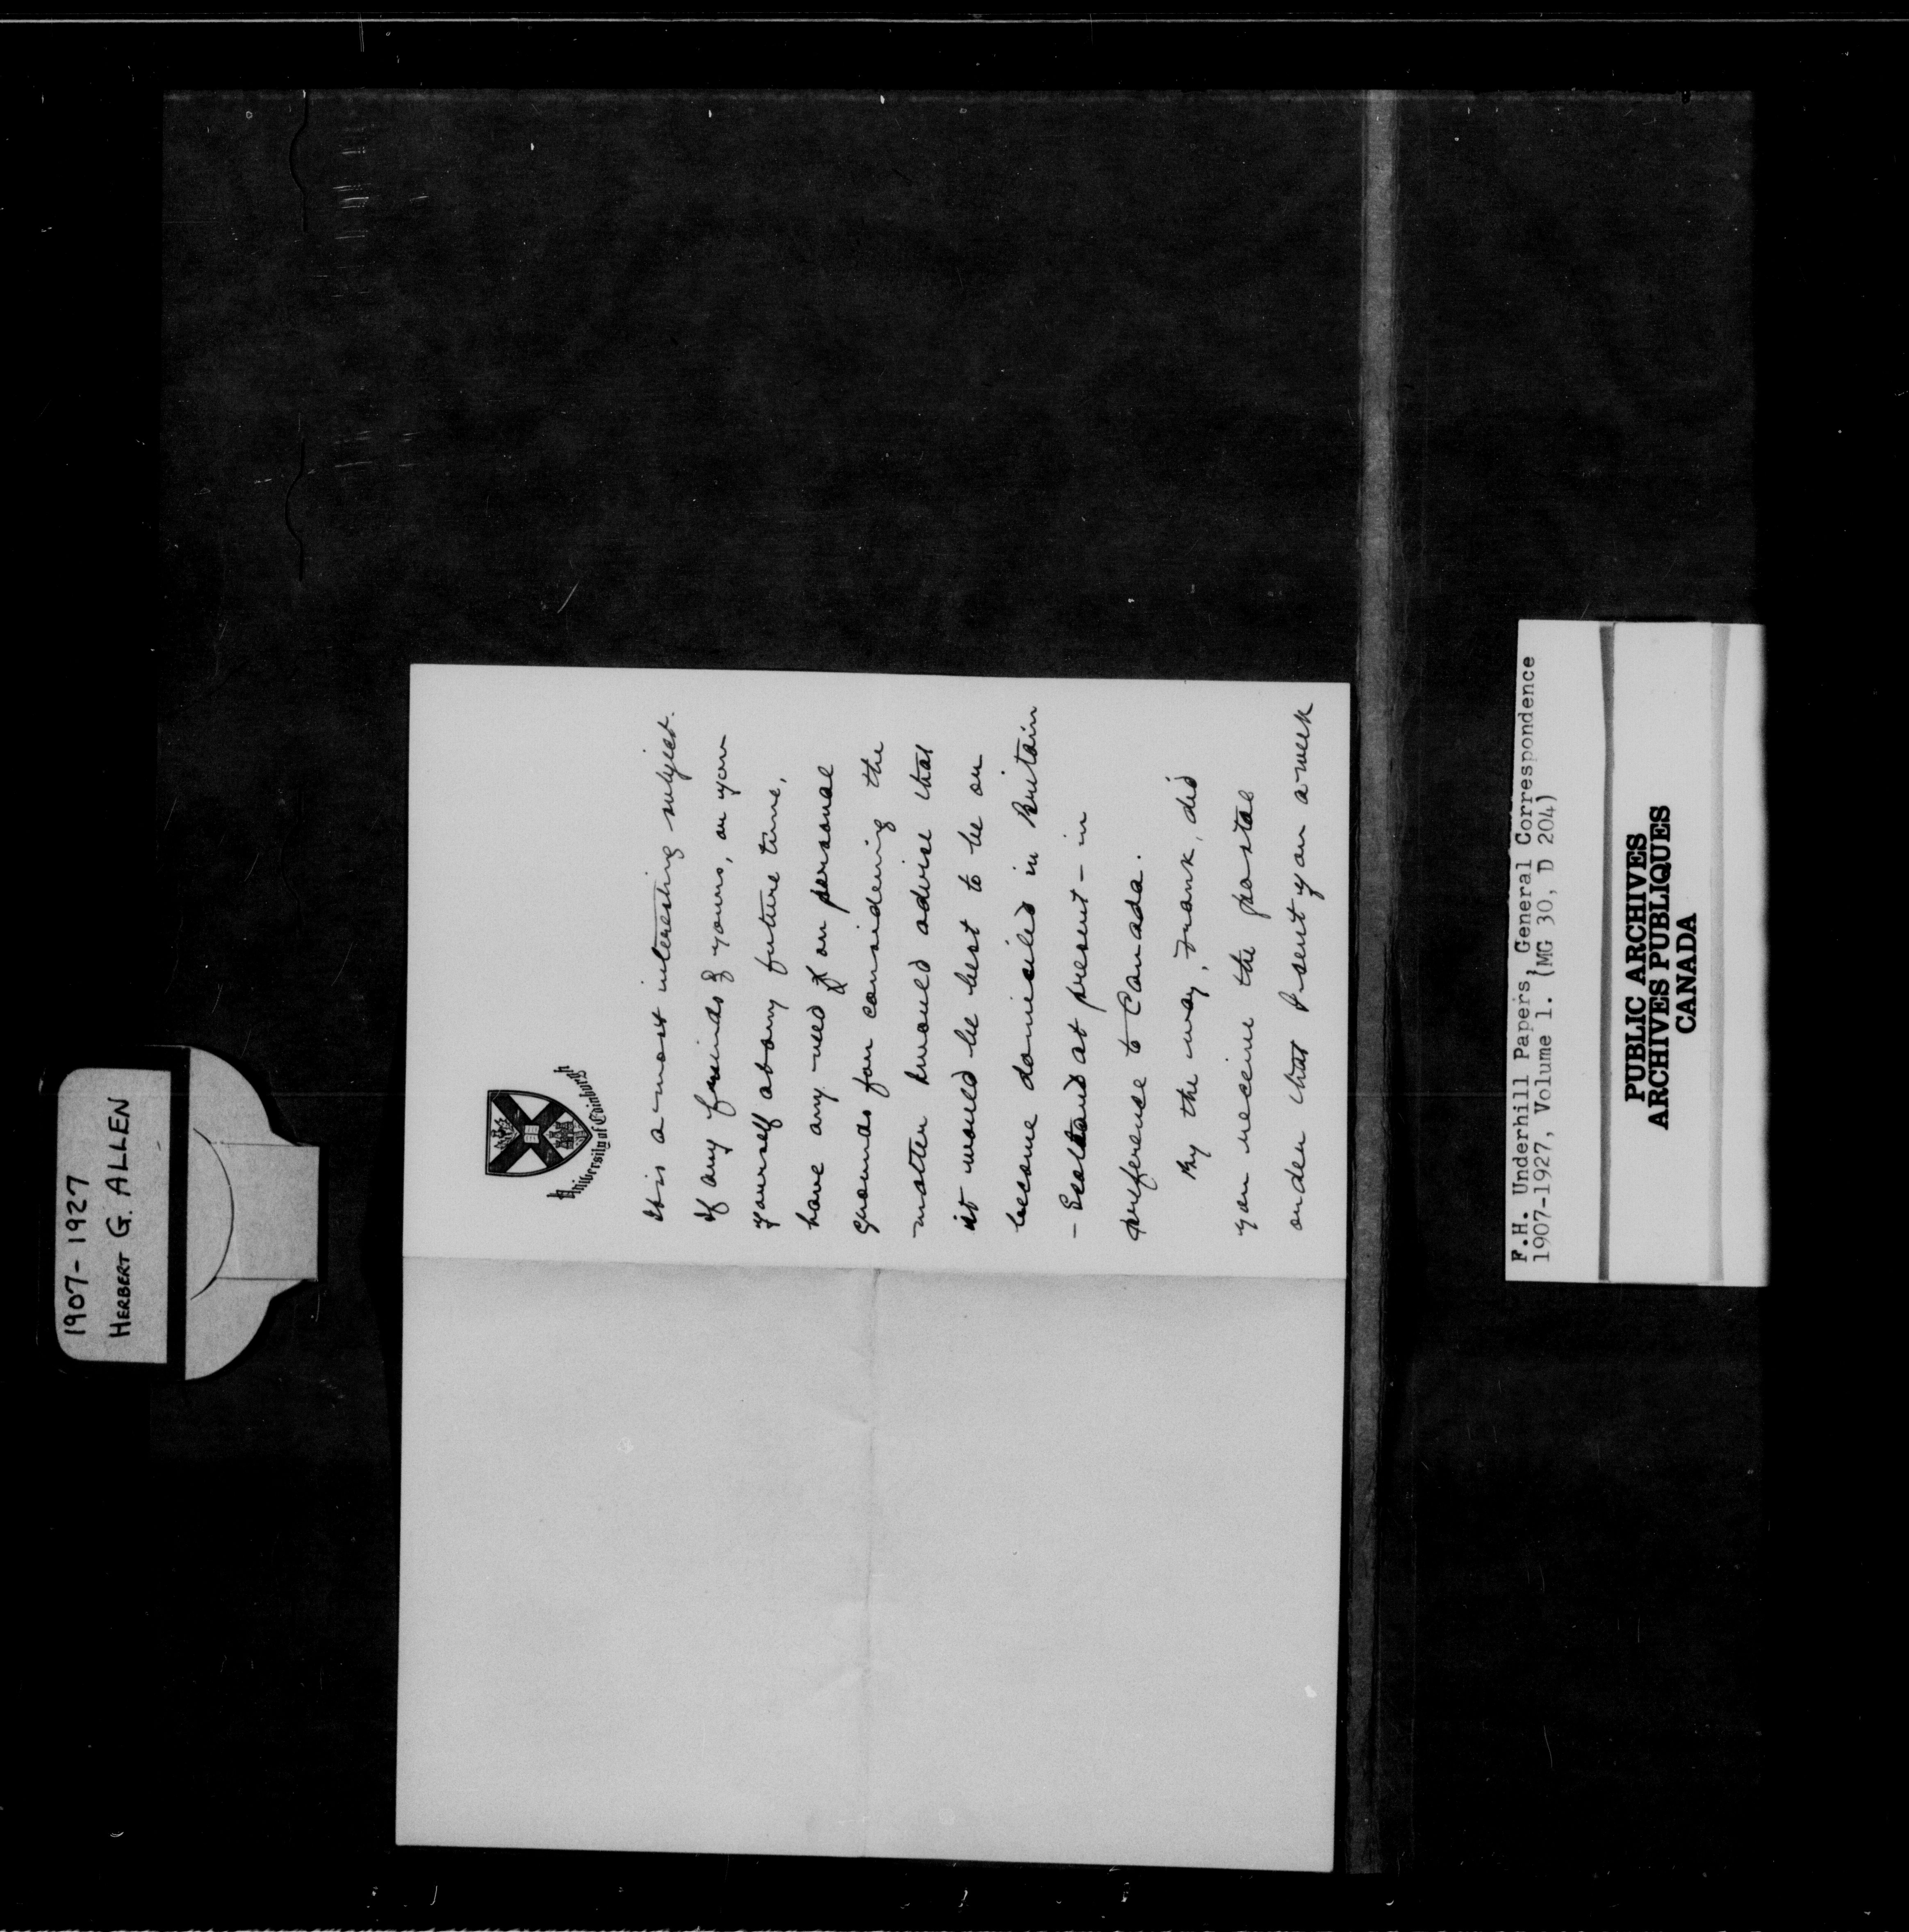 1907-1927
HERBERT G. ALLEN
University of Edinburgh
It is a most interesting subject.
If any friends of yours, or you
yourself at any future time,
have any need of or personal
grounds for considering the
matter I would advise that
it would be best to be or
become domiciled in Britain
- Scotland at present - in
preference to Canada.
By the way, Frank, did
you receive the postal
order that I sent you a week
F.H. Underhill Papers, General Correspondence
1907-1927, Volume 1. (MG 30, D 204)
PUBLIC ARCHIVES
ARCHIVES PUBLIQUES
CANADA